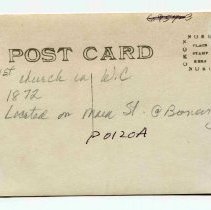 POST CARD
1st church in W.C
1872
Located on Main St. @ Bonanza
P0120A
PLACE
STAMP
HERE